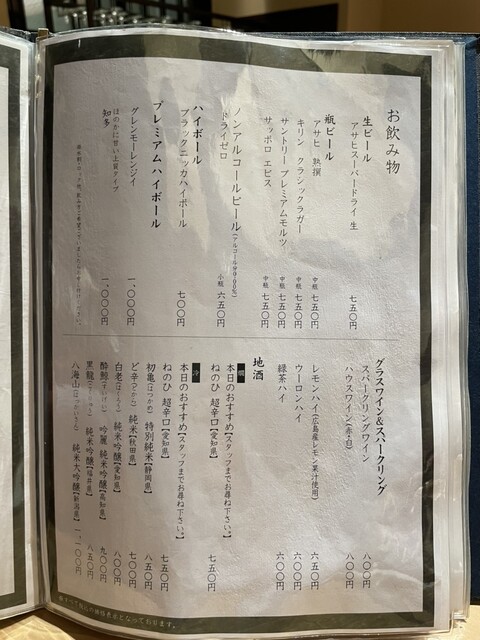 お飲み物
生ビール
アサヒスーパードライ 生 七五〇円
瓶ビール
アサヒ 熟撰 中瓶 七五〇円
キリン クラシックラガー 中瓶 七五〇円
サントリー プレミアムモルツ 中瓶 七五〇円
サッポロ エビス 中瓶 七五〇円
ノンアルコールビール(アルコール分0.00%)
ドライゼロ 小瓶 六五〇円
ハイボール
ブラックニッカハイボール 七〇〇円
プレミアムハイボール
グレンモーレンジイ 一、〇〇〇円
知多 一、〇〇〇円
ほのかに甘い上質タイプ
グラスワイン&スパークリング
スパークリングワイン 八〇〇円
ハウスワイン(赤・白) 八〇〇円
レモンハイ(広島産レモン果汁使用) 六五〇円
ウーロンハイ 六〇〇円
緑茶ハイ 六〇〇円
地酒
燗
本日のおすすめ【スタッフまでお尋ね下さい。】
ねのひ 超辛口【愛知県】 七五〇円
冷
本日のおすすめ【スタッフまでお尋ね下さい。】
ねのひ 超辛口【愛知県】 七五〇円
初亀(はつかめ) 特別純米【静岡県】 八五〇円
ど辛(どから) 純米【秋田県】 七〇〇円
白老(はくろう) 純米吟醸【愛知県】 八〇〇円
酔鯨(すいげい) 吟麗 純米吟醸【高知県】 九〇〇円
黒龍(こくりゅう) 純米吟醸【福井県】 八五〇円
八海山(はっかいさん) 純米大吟醸【新潟県】 一、一〇〇円
※すべて税込の価格表示となっております。